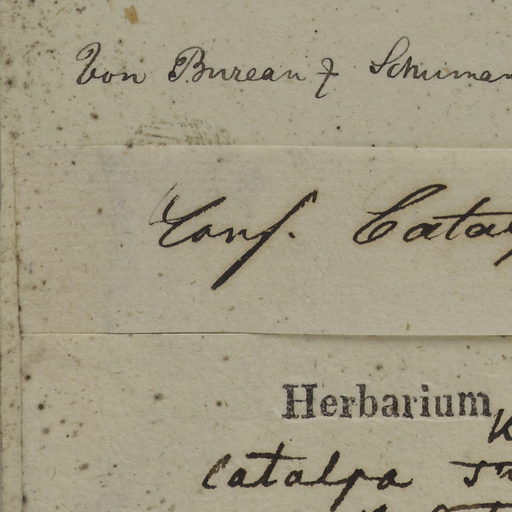 Von Bureau & Schuman
Conf. Catalp
Herbarium
Catalpa